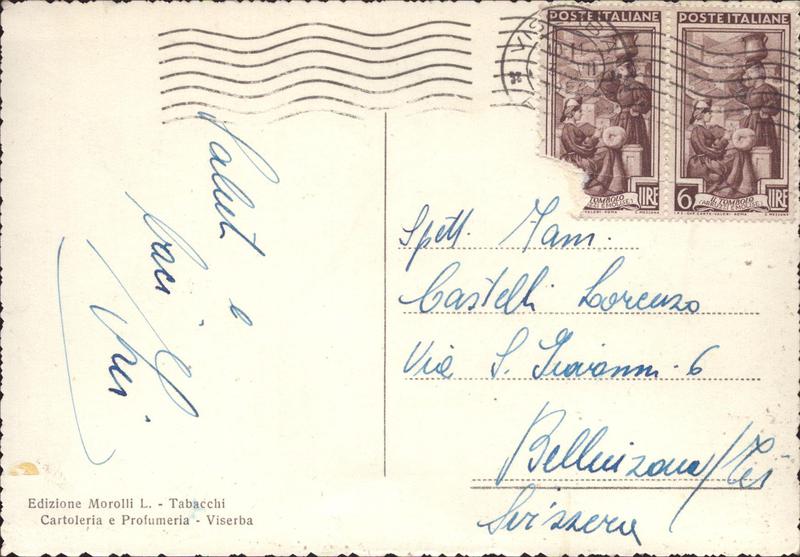 POSTE ITALIANE POSTE ITALIANE
LIRE 6 LIRE
TOMBOLO IL TOMBOLO
(ABRUZZI E MOLISE)
Salut e
baci
Spett. Fam.
Castelli Lorenzo
Via S. Giovanni 6
Bellinzona/Ti
Svizzera
Edizione Morolli L. - Tabacchi
Cartoleria e Profumeria - Viserba